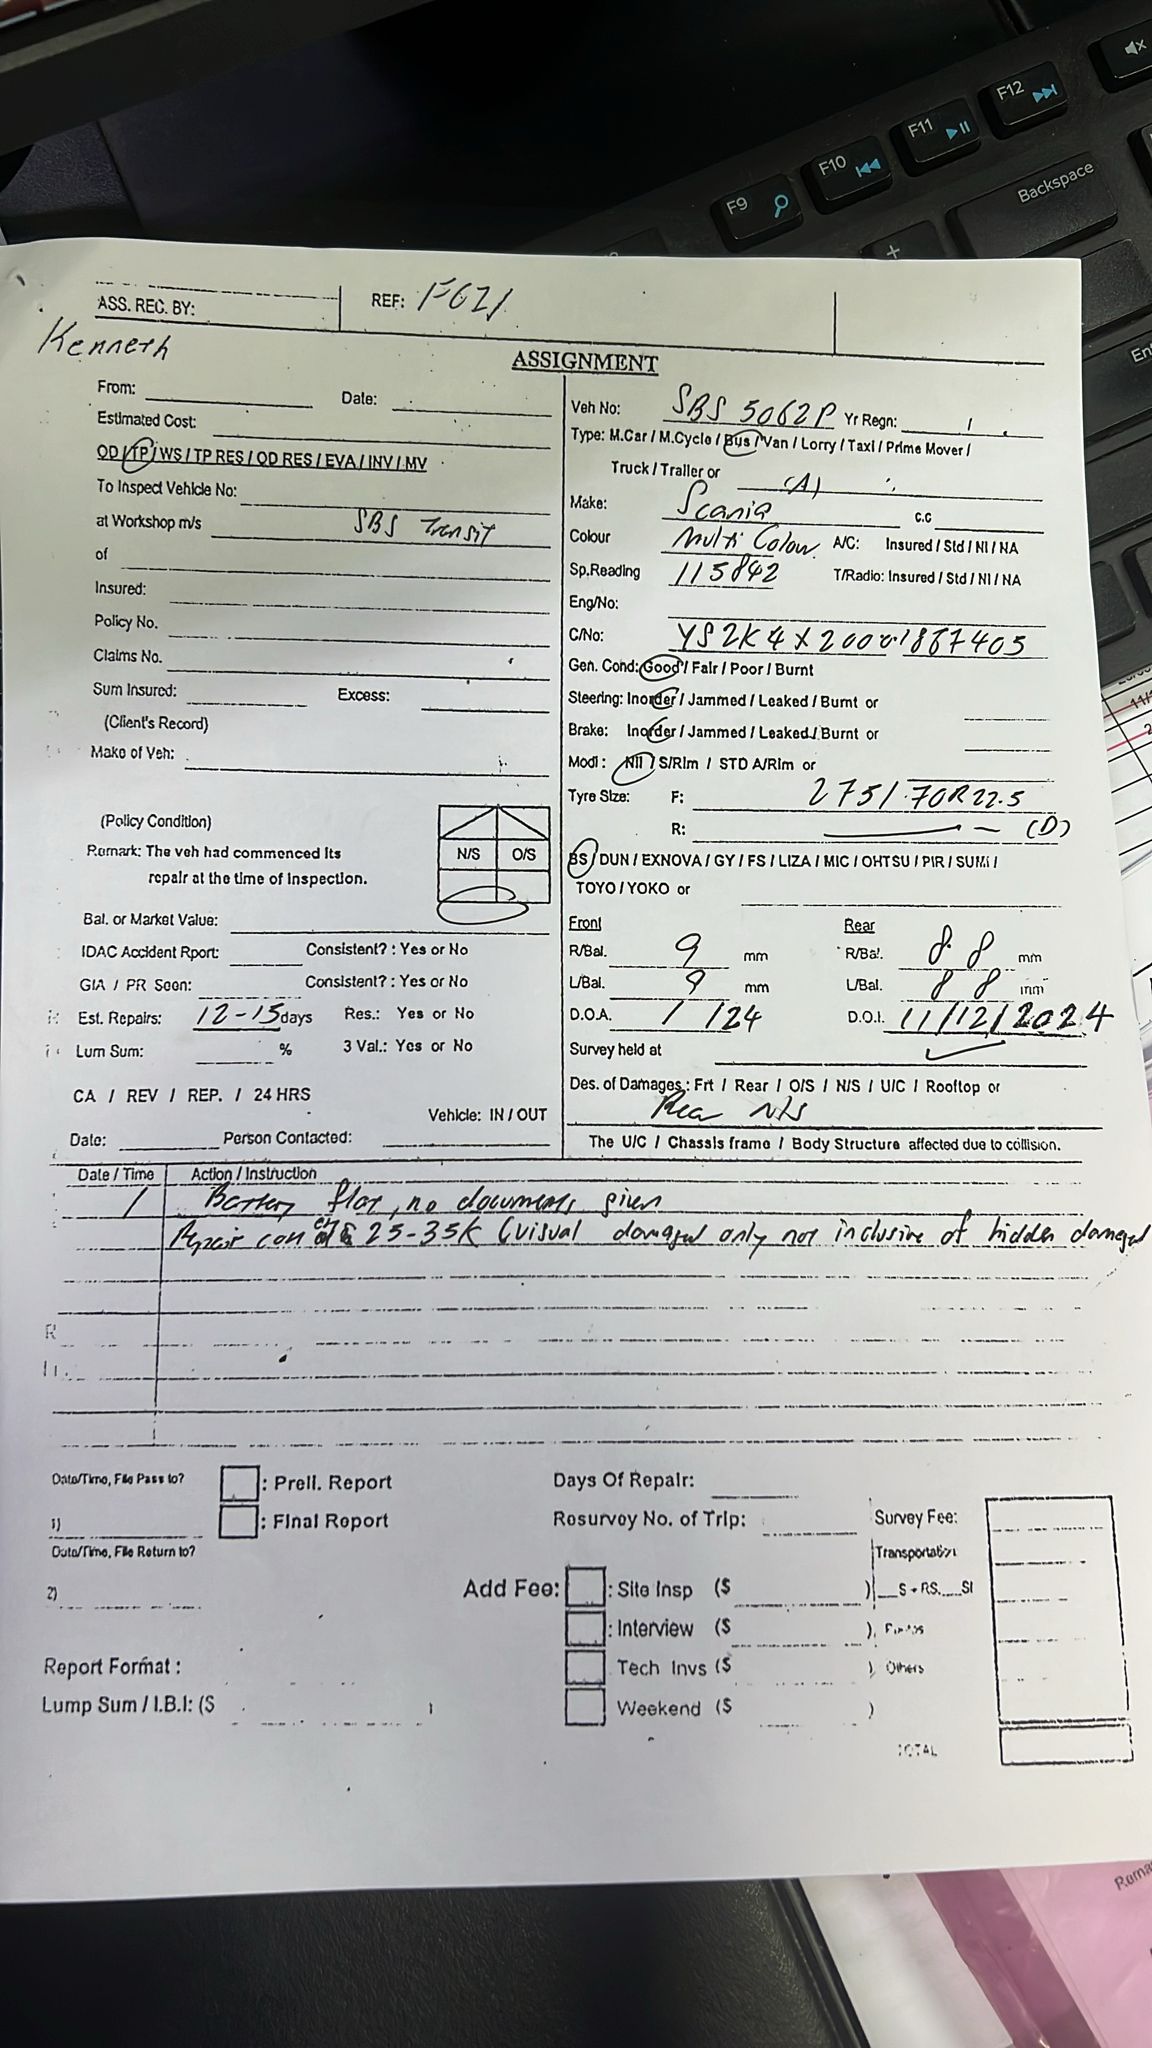 F9
F10
F11
F12
Backspace
+
ASS. REC. BY:
REF:
Kenneth
ASSIGNMENT
From: Date:
Estimated Cost:
OD / TP / WS / TP RES / OD RES / EVA / INV / MV
To Inspect Vehicle No:
at Workshop m/s SBS Transit
of
Insured:
Policy No.
Claims No.
Sum Insured: Excess:
(Client's Record)
Make of Veh:
(Policy Condition)
Remark: The veh had commenced its
repair at the time of inspection.
N/S O/S
Bal. or Market Value:
IDAC Accident Rport: Consistent? : Yes or No
GIA / PR Seen: Consistent? : Yes or No
Est. Repairs: 12-15 days Res.: Yes or No
Lum Sum: % 3 Val.: Yes or No
CA / REV / REP. / 24 HRS
Vehicle: IN / OUT
Date: Person Contacted:
Veh No: SBS 5062P Yr Regn: /
Type: M.Car / M.Cycle / Bus / Van / Lorry / Taxi / Prime Mover /
Truck / Trailer or (A)
Make: Scania c.c
Colour Multi Colour A/C: Insured / Std / NI / NA
Sp.Reading 115842 T/Radio: Insured / Std / NI / NA
Eng/No:
C/No: YS2K4X20001867405
Gen. Cond: Good / Fair / Poor / Burnt
Steering: Inorder / Jammed / Leaked / Burnt or
Brake: Inorder / Jammed / Leaked / Burnt or
Modi : Nil / S/Rim / STD A/Rim or
Tyre Size: F: 275/70R22.5
R: (D)
BS / DUN / EXNOVA / GY / FS / LIZA / MIC / OHTSU / PIR / SUMI /
TOYO / YOKO or
Front Rear
R/Bal. 9 mm R/Bal. 8 8 mm
L/Bal. 9 mm L/Bal. 8 8 mm
D.O.A. / /24 D.O.I. 11/12/2024
Survey held at
Des. of Damages : Frt / Rear / O/S / N/S / U/C / Rooftop or
Rear N/S
The U/C / Chassis frame / Body Structure affected due to collision.
Date / Time Action / Instruction
/ Battery flat, no documents given
Repair cost 25-35K (visual damaged only not inclusive of hidden damaged
Date/Time, File Pass to? : Prell. Report Days Of Repair:
1) : Final Report Resurvey No. of Trip: Survey Fee:
Date/Time, File Return to? Transportation
2) Add Fee: : Site Insp ($ ) S + RS. SI
: Interview ($ ),
Report Format : : Tech Invs ($ ) Others
Lump Sum / I.B.I: ($ ) : Weekend ($ )
TOTAL